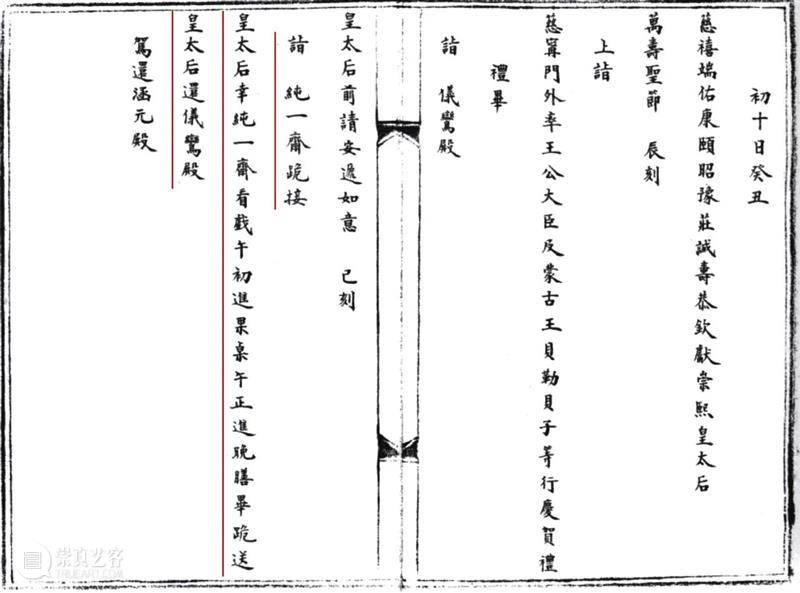 初十日癸丑
慈禧端佑康頤昭豫莊誠壽恭欽獻崇熙皇太后
萬壽聖節 辰刻
上詣
慈寗門外率王公大臣及蒙古王貝勒貝子等行慶賀禮
禮畢
詣 儀鸞殿
皇太后前請安遞如意 已刻
詣 純一齋跪接
皇太后幸純一齋看戲午初進果桌午正進晚膳畢跪送
皇太后還儀鸞殿
駕還涵元殿
崇真艺客
WWW.TRUEART.COM